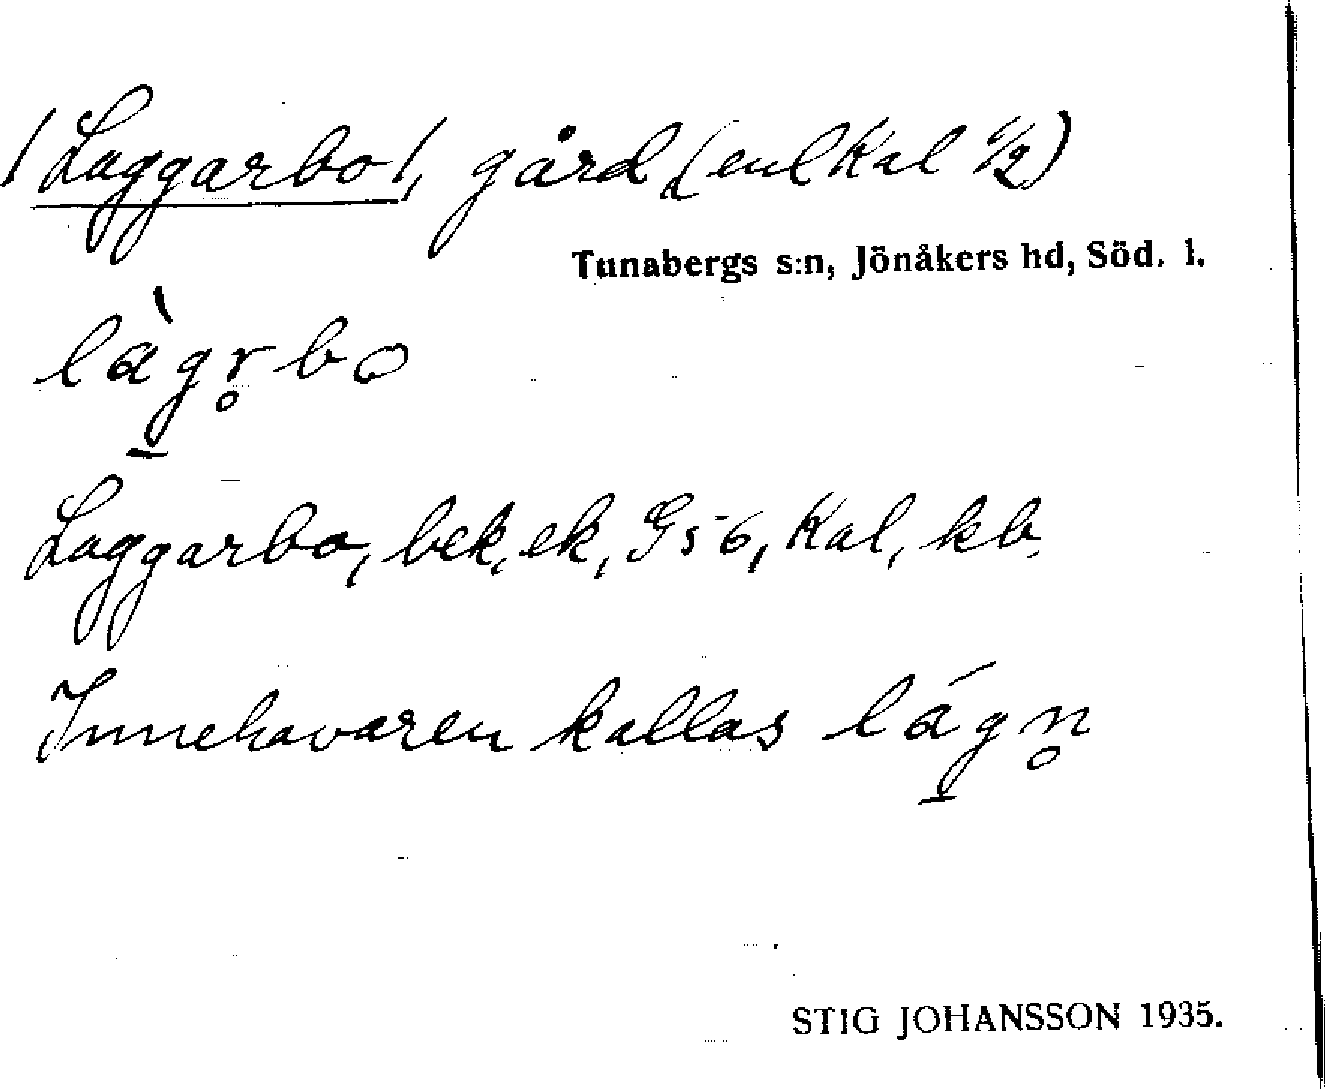 /Laggarbo/, gård (enl Kal 1/2)
Tunabergs s:n, Jönåkers hd, Söd. l.
làg̠r̥bo
Laggarbo, bek, ek, Gs 6, Kal, kb.
Innehavaren kallas lág̠n̥
STIG JOHANSSON 1935.